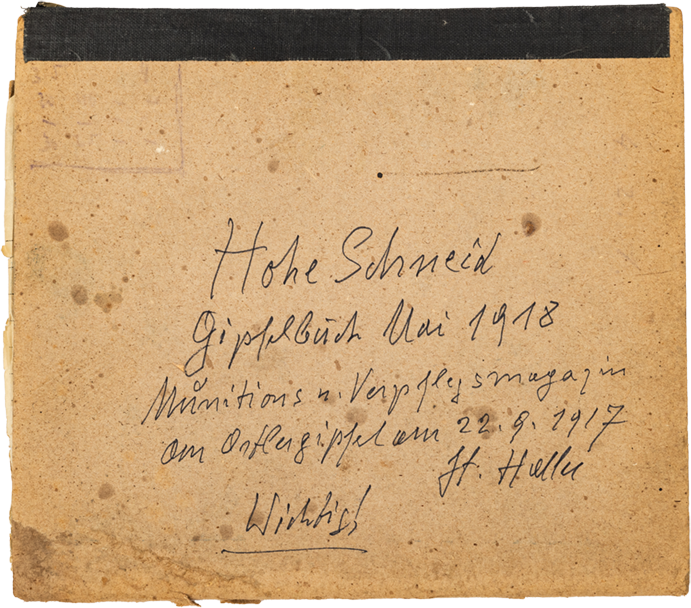 Hohe Schneid
Gipfelbuch Mai 1918
Munitions u. Verpflegsmagazin
am Ortlergipfel am 22. 9. 1917
Wichtig